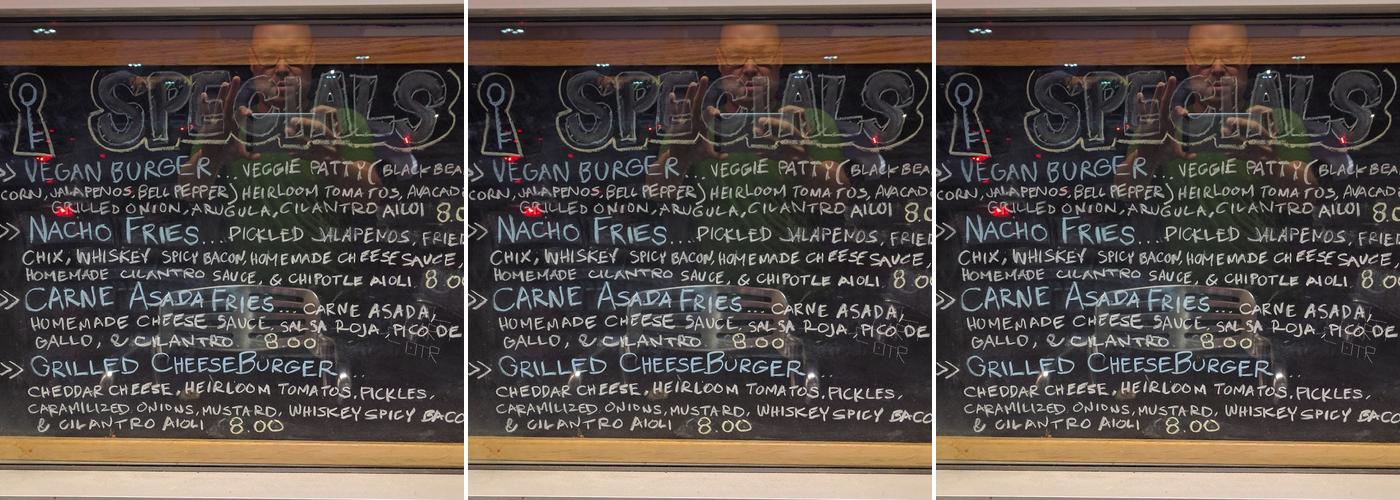 SPECIALS
>> VEGAN BURGER... VEGGIE PATTY (BLACK BEA
CORN, JALAPENOS, BELL PEPPER) HEIRLOOM TOMATOS, AVACAD
GRILLED ONION, ARUGULA, CILANTRO AILOI 8.0
>> NACHO FRIES.... PICKLED JALAPENOS, FRIED
CHIX, WHISKEY SPICY BACON, HOMEMADE CHEESE SAUCE,
HOMEMADE CILANTRO SAUCE, & CHIPOTLE AIOLI 8.00
>> CARNE ASADA FRIES... CARNE ASADA,
HOMEMADE CHEESE SAUCE, SALSA ROJA, PICO DE
GALLO, & CILANTRO 8.00
>> GRILLED CHEESEBURGER...
CHEDDAR CHEESE, HEIRLOOM TOMATOS, PICKLES,
CARAMILIZED ONIONS, MUSTARD, WHISKEY SPICY BACO
& CILANTRO AIOLI 8.00
SPECIALS
>> VEGAN BURGER... VEGGIE PATTY (BLACK BEA
CORN, JALAPENOS, BELL PEPPER) HEIRLOOM TOMATOS, AVACAD
GRILLED ONION, ARUGULA, CILANTRO AILOI 8.0
>> NACHO FRIES.... PICKLED JALAPENOS, FRIED
CHIX, WHISKEY SPICY BACON, HOMEMADE CHEESE SAUCE,
HOMEMADE CILANTRO SAUCE, & CHIPOTLE AIOLI 8.00
>> CARNE ASADA FRIES... CARNE ASADA,
HOMEMADE CHEESE SAUCE, SALSA ROJA, PICO DE
GALLO, & CILANTRO 8.00
>> GRILLED CHEESEBURGER...
CHEDDAR CHEESE, HEIRLOOM TOMATOS, PICKLES,
CARAMILIZED ONIONS, MUSTARD, WHISKEY SPICY BACO
& CILANTRO AIOLI 8.00
SPECIALS
>> VEGAN BURGER... VEGGIE PATTY (BLACK BEA
CORN, JALAPENOS, BELL PEPPER) HEIRLOOM TOMATOS, AVACAD
GRILLED ONION, ARUGULA, CILANTRO AILOI 8.0
>> NACHO FRIES.... PICKLED JALAPENOS, FRIED
CHIX, WHISKEY SPICY BACON, HOMEMADE CHEESE SAUCE,
HOMEMADE CILANTRO SAUCE, & CHIPOTLE AIOLI 8.00
>> CARNE ASADA FRIES... CARNE ASADA,
HOMEMADE CHEESE SAUCE, SALSA ROJA, PICO DE
GALLO, & CILANTRO 8.00
>> GRILLED CHEESEBURGER...
CHEDDAR CHEESE, HEIRLOOM TOMATOS, PICKLES,
CARAMILIZED ONIONS, MUSTARD, WHISKEY SPICY BACO
& CILANTRO AIOLI 8.00